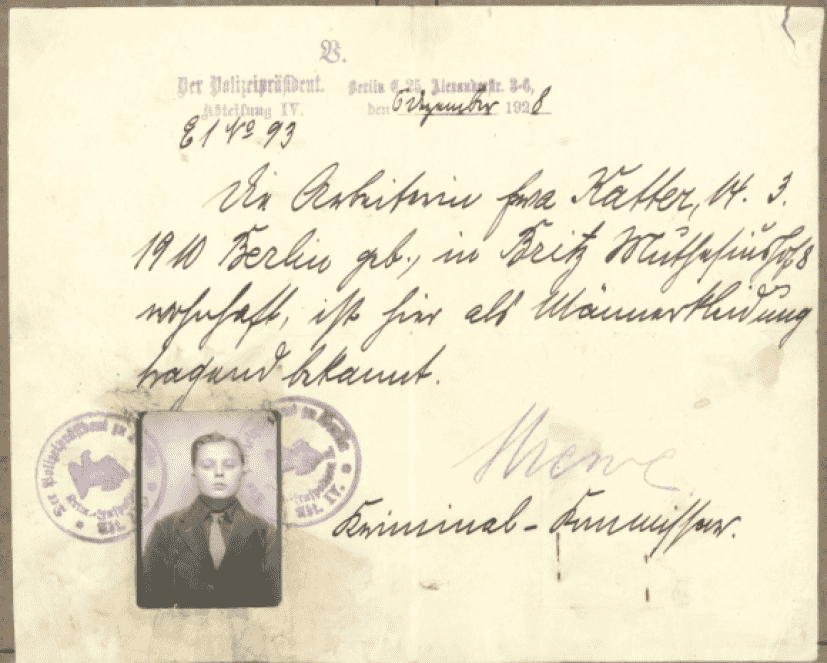 V.
Der Polizeipräsident. Berlin C. 25, Alexanderstr. 3-6,
Abteilung IV. den 6 Dezember 1928
E 1 No 93
Die Arbeiterin Eva Katter, 14. 3.
1910 Berlin geb., in Britz Muthesiushof 8
wohnhaft, ist hier als Männerkleidung
tragend bekannt.
Der Polizeipräsident zu
Abt. IV.
Kriminal-Kommissar.